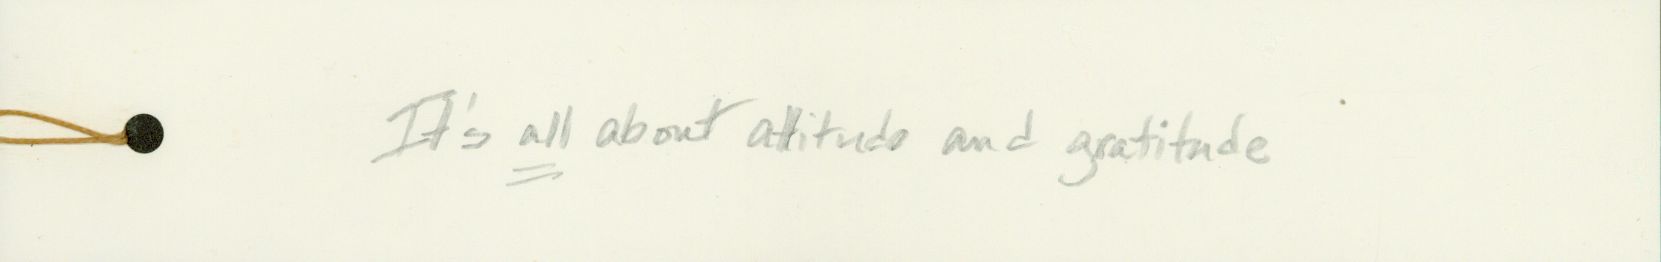 It's all about attitude and gratitude